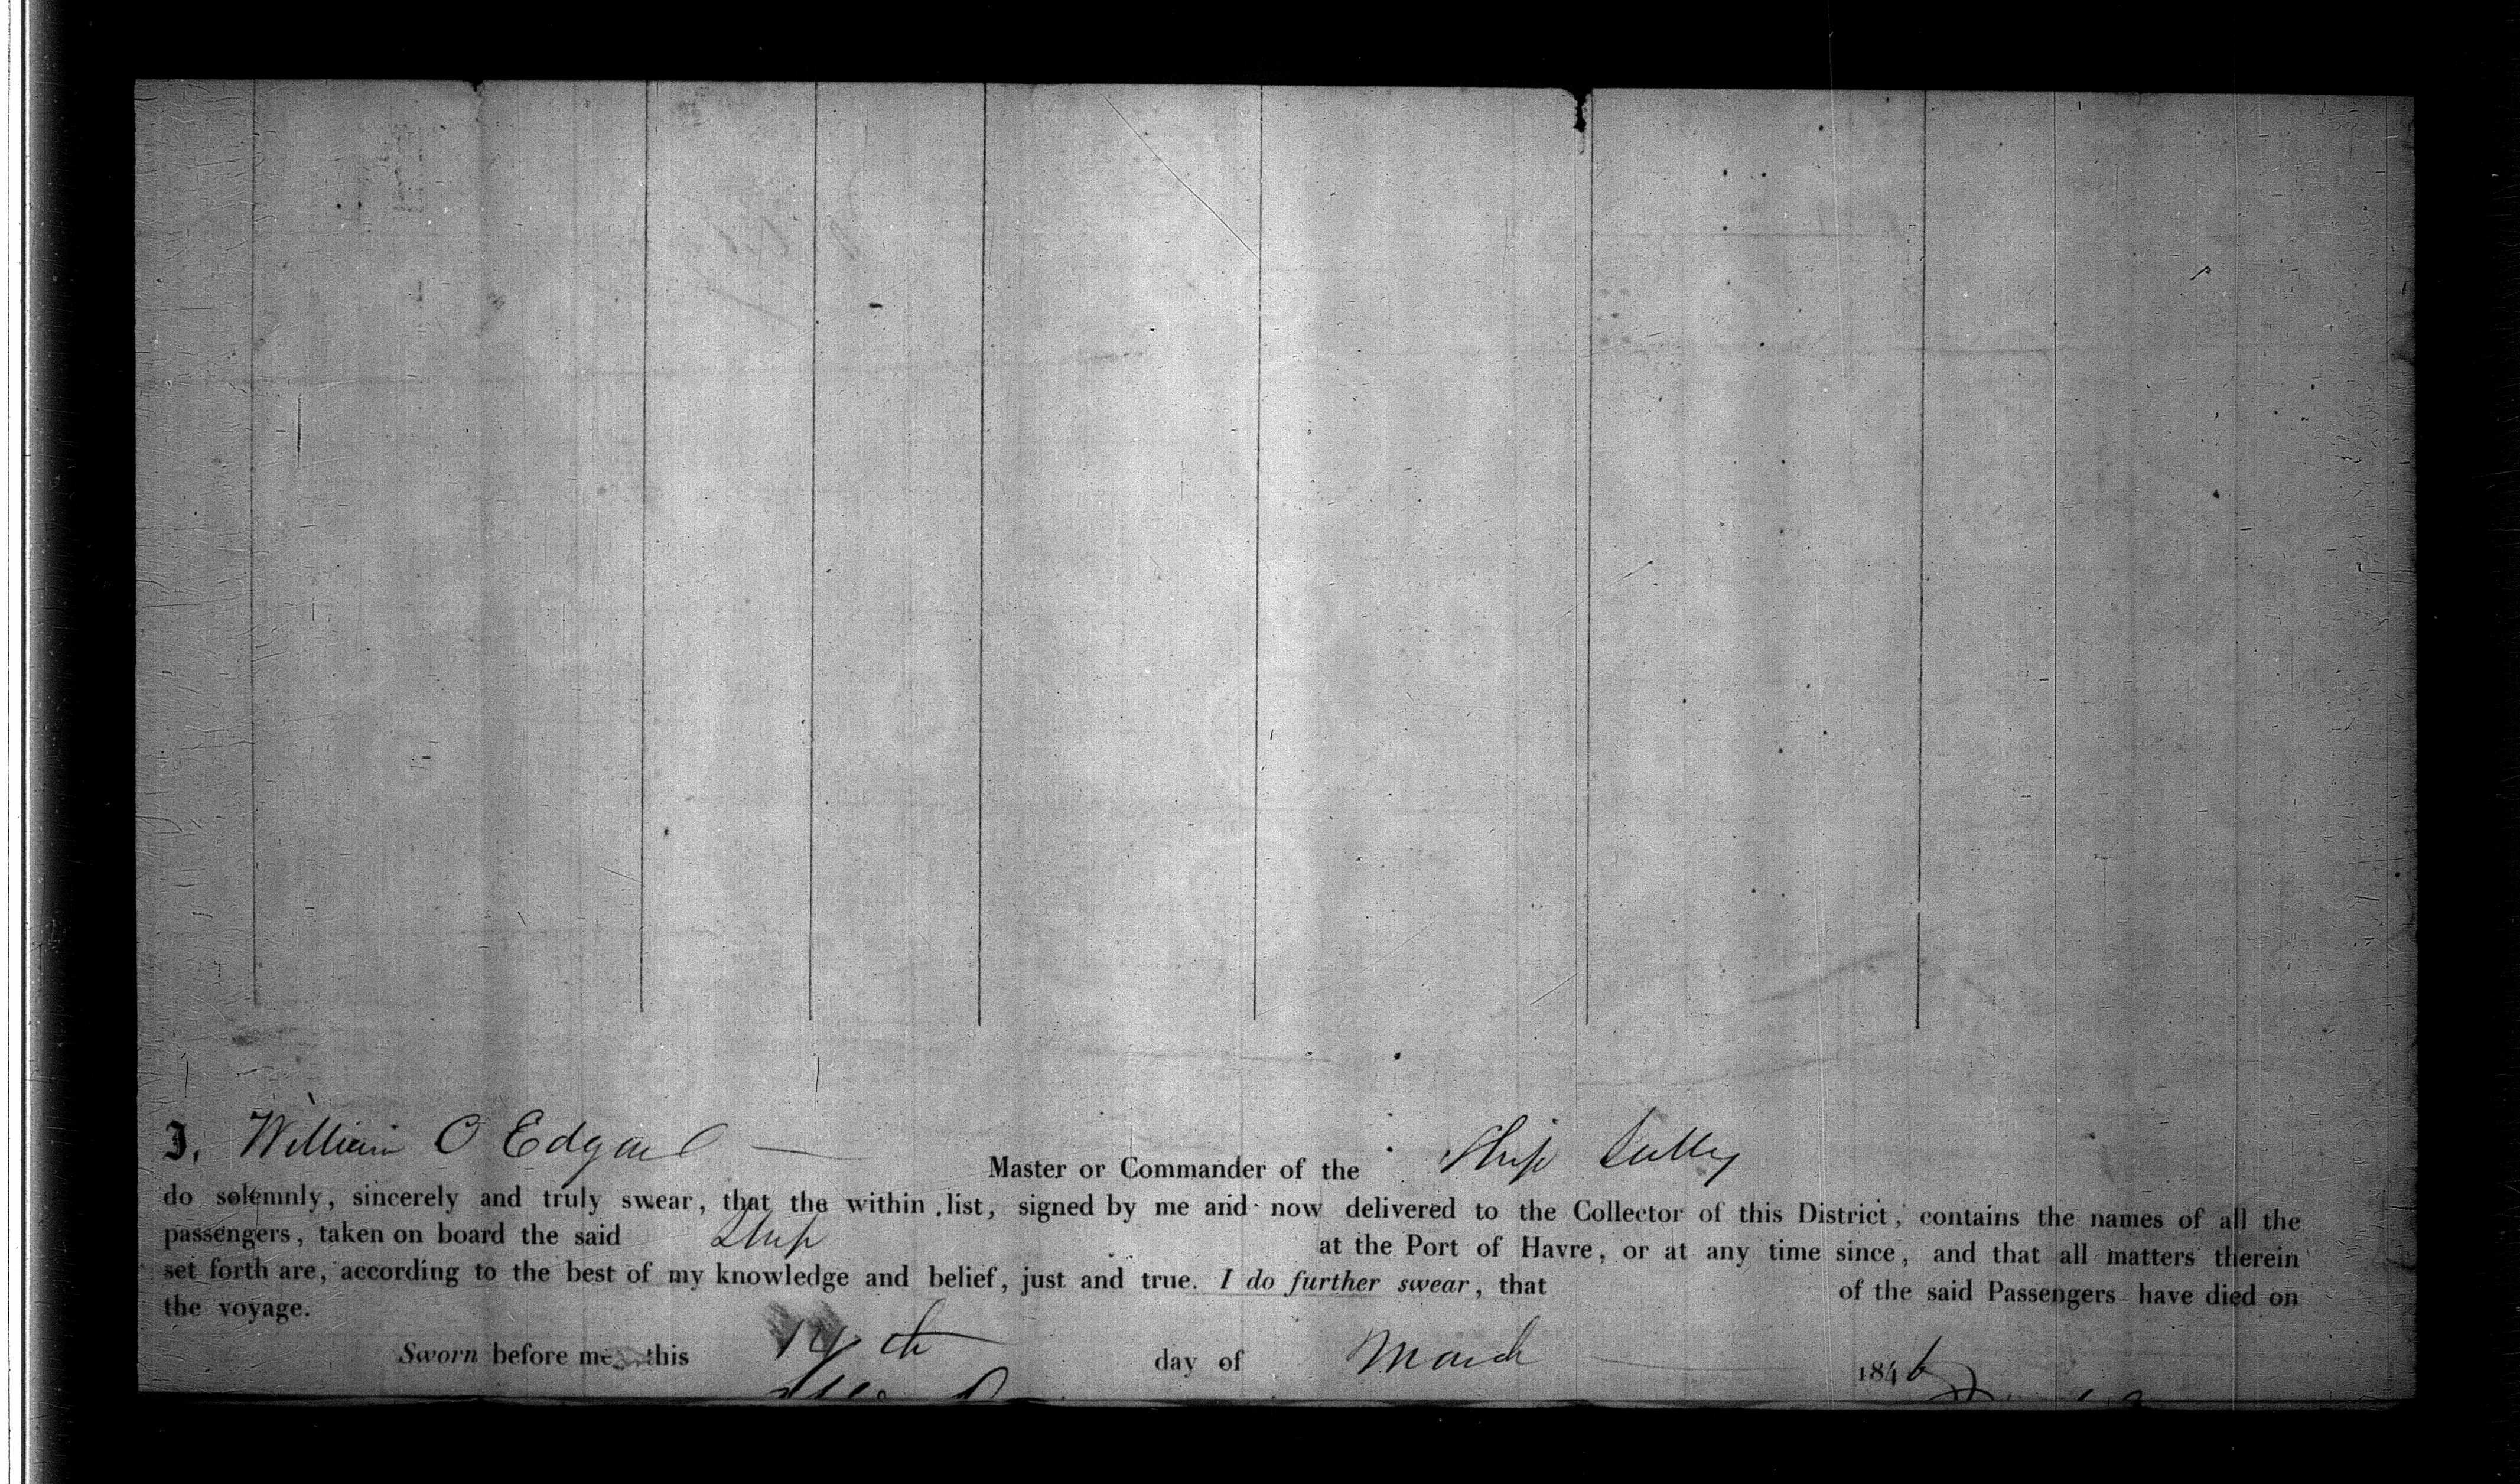 I, William C Edgar Master or Commander of the Ship Sully
do solemnly, sincerely and truly swear, that the within list, signed by me and now delivered to the Collector of this District, contains the names of all the
passengers, taken on board the said Ship at the Port of Havre, or at any time since, and that all matters therein
set forth are, according to the best of my knowledge and belief, just and true. I do further swear, that of the said Passengers have died on
the voyage.
Sworn before me this 14th day of March 1846